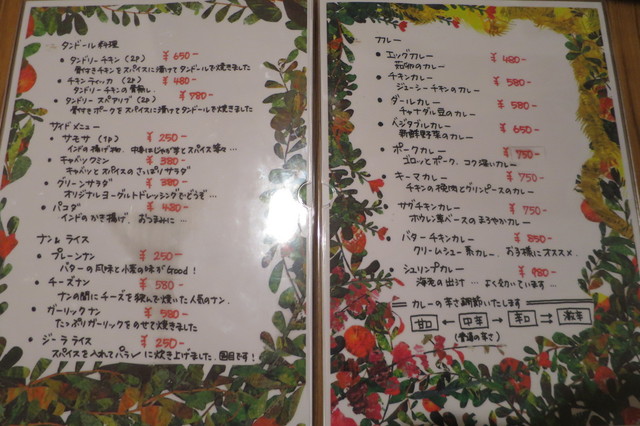 タンドール料理
・タンドリーチキン (2P) ¥650-
骨付きチキンをスパイスに漬けてタンドールで焼きました
・チキンティッカ (2P) ¥480-
タンドリーチキンの骨無し
・タンドリー スペアリブ (2P) ¥780-
骨付きポークをスパイスに漬けてタンドールで焼きました
サイドメニュー
・サモサ (1P) ¥250-
インドの揚げ物。中身はじゃが芋とスパイス等々…
・キャバツクミン ¥380-
キャベツとスパイスのさっぱりサラダ
・グリーンサラダ ¥380-
オリジナルヨーグルトドレッシングでどうぞ…
・パコダ ¥480-
インドのかき揚げ。おつまみに…
ナン & ライス
・プレーンナン ¥250-
バターの風味と小麦の味がGood!
・チーズナン ¥580-
ナンの間にチーズを挟んで焼いた人気のナン。
・ガーリックナン ¥580-
たっぷりガーリックをのせて焼きました
・ジーラライス ¥250-
スパイスを入れてパラパラに炊き上げました。
カレー
・エッグカレー ¥480-
・チキンカレー ¥580-
ジューシーチキンのカレー
・ダールカレー ¥580-
チャナダル豆のカレー
・ベジタブルカレー ¥650-
新鮮野菜のカレー
・ポークカレー ¥750-
ゴロッとポーク、コク深いカレー
・キーマカレー ¥750-
チキンの挽肉とグリンピースのカレー
・サグチキンカレー ¥750-
ホウレン草ベースのまろやかカレー
・バターチキンカレー ¥850-
クリームシュー系カレー。お子様にオススメ。
・シュリンプカレー ¥980-
海老の出汁…よく効いています…
カレーの辛さ調節いたします
甘口 ← 中辛 → 辛口 ⇒ 激辛
(普通の辛さ)